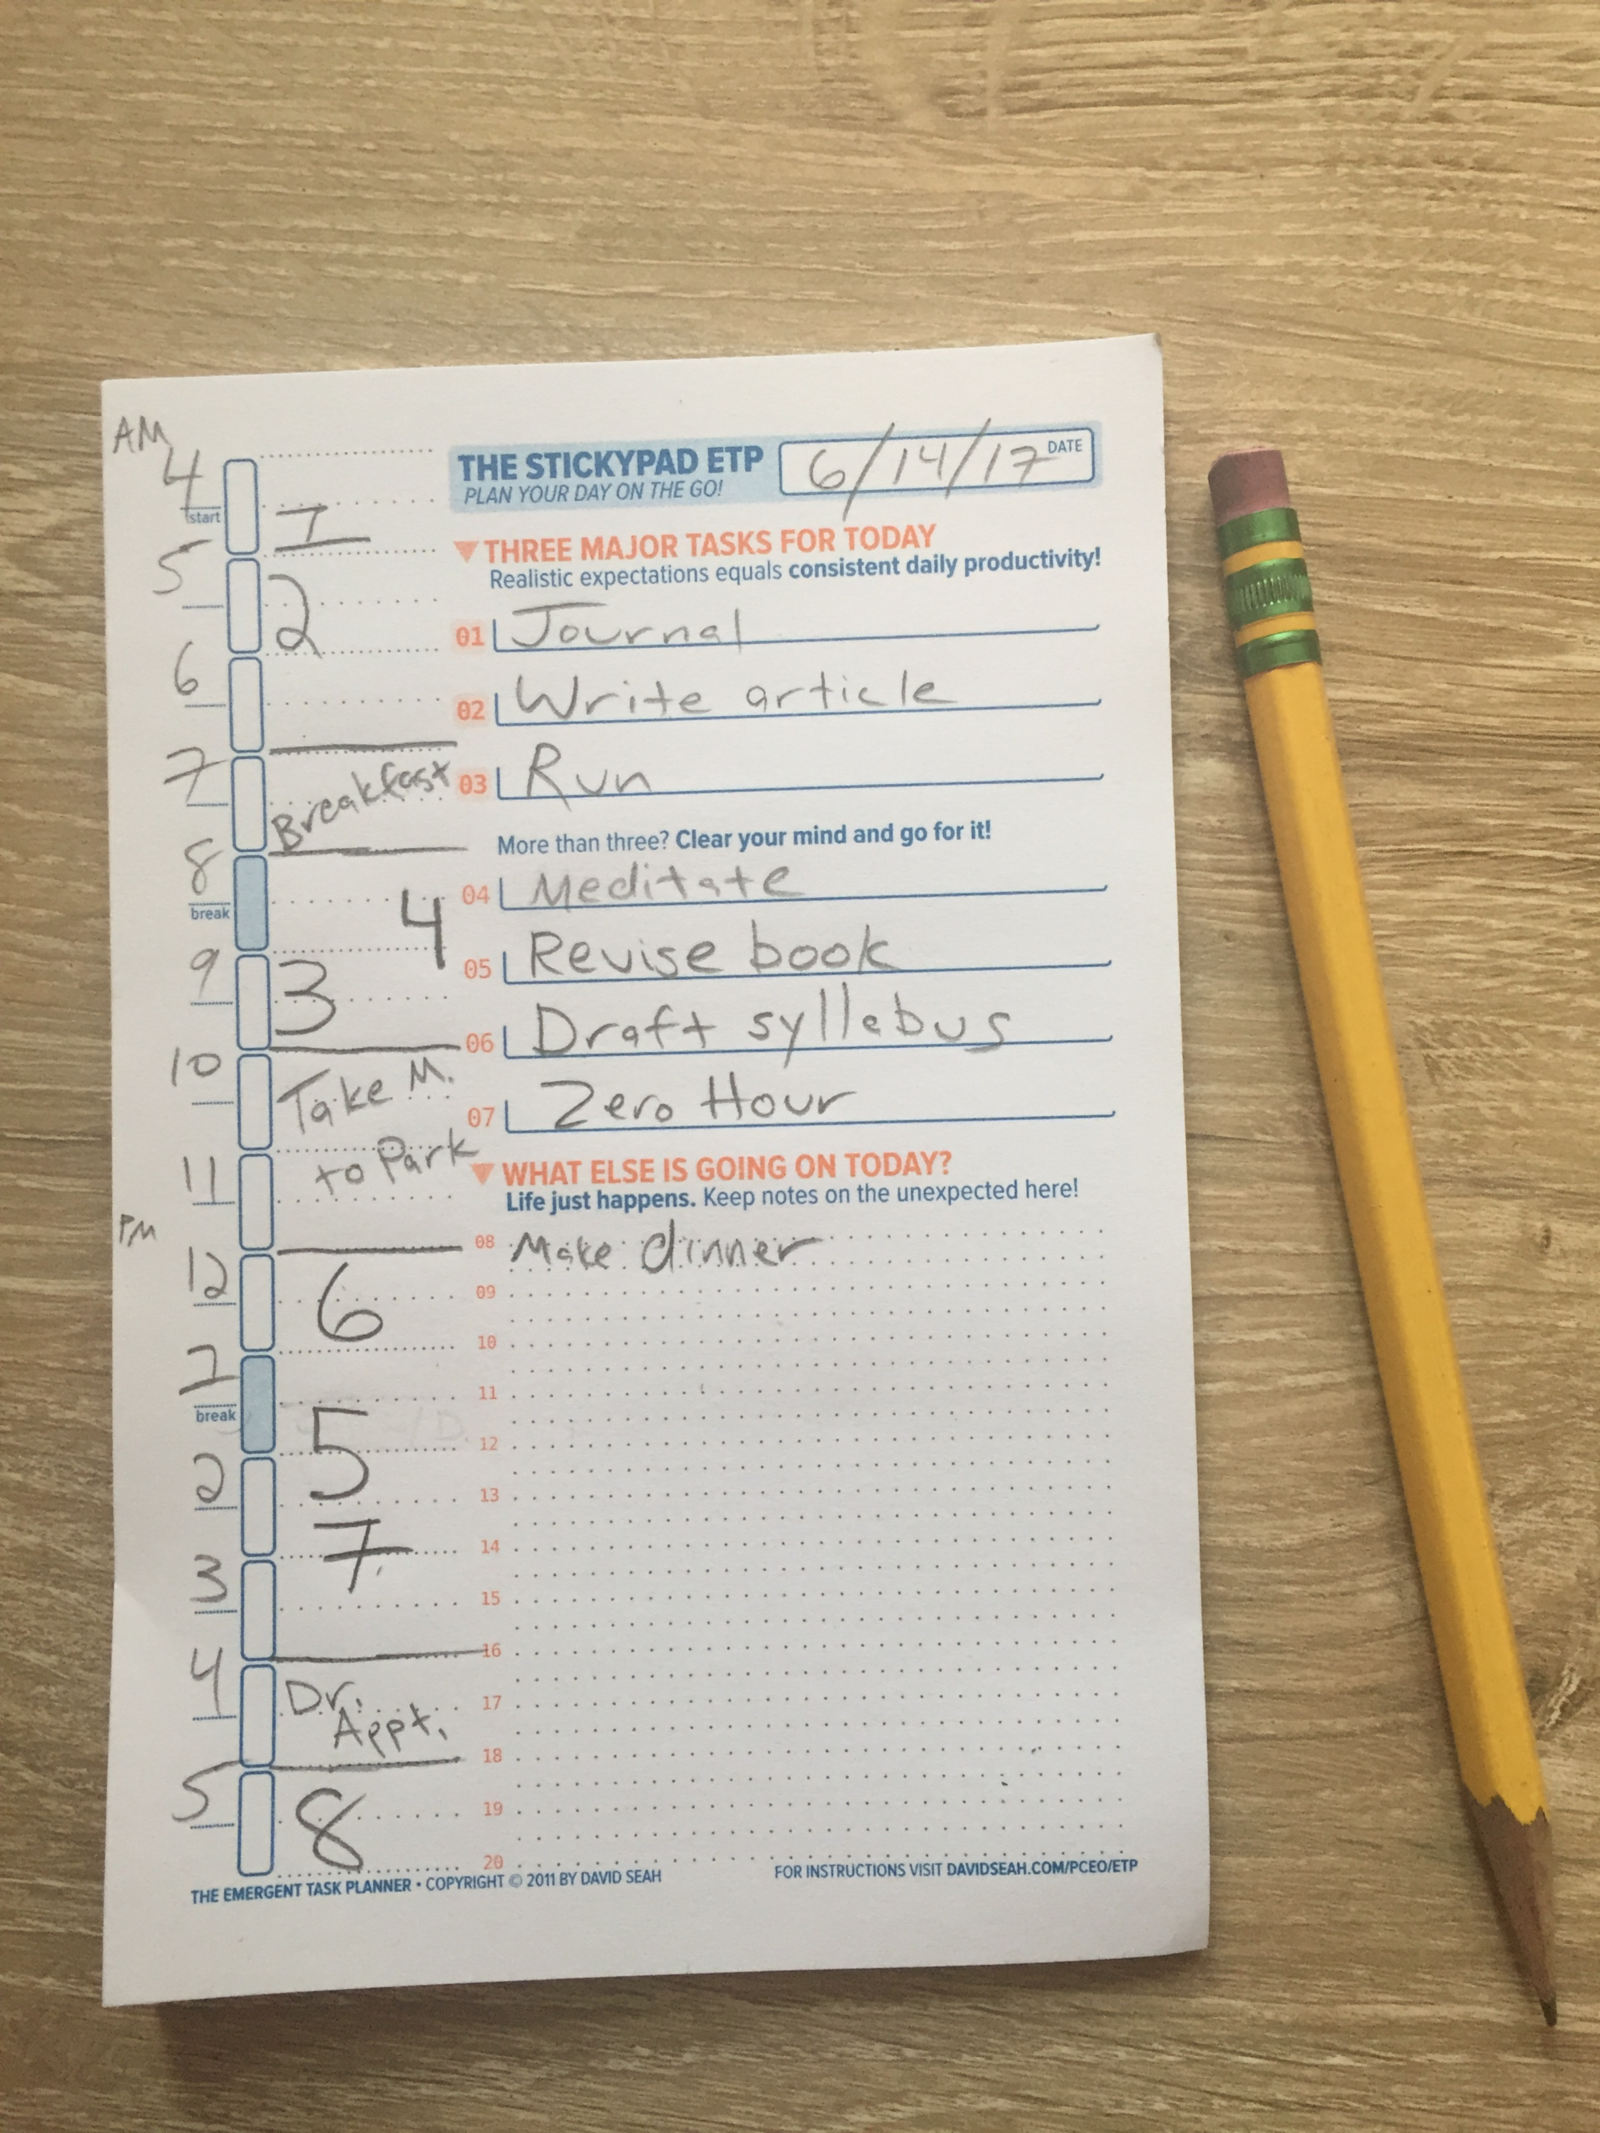 AM
4
start
1
5
2
6
7
Breakfast
8
break
4
9
3
10
Take M.
to Park
11
PM
12
6
1
break
5
2
7
3
4
Dr.
Appt.
5
8
THE STICKYPAD ETP
PLAN YOUR DAY ON THE GO!
6/14/17 DATE
THREE MAJOR TASKS FOR TODAY
Realistic expectations equals consistent daily productivity!
01 Journal
02 Write article
03 Run
More than three? Clear your mind and go for it!
04 Meditate
05 Revise book
06 Draft syllabus
07 Zero Hour
WHAT ELSE IS GOING ON TODAY?
Life just happens. Keep notes on the unexpected here!
08 Make dinner
09
10
11
12
13
14
15
16
17
18
19
20
THE EMERGENT TASK PLANNER • COPYRIGHT © 2011 BY DAVID SEAH
FOR INSTRUCTIONS VISIT DAVIDSEAH.COM/PCEO/ETP